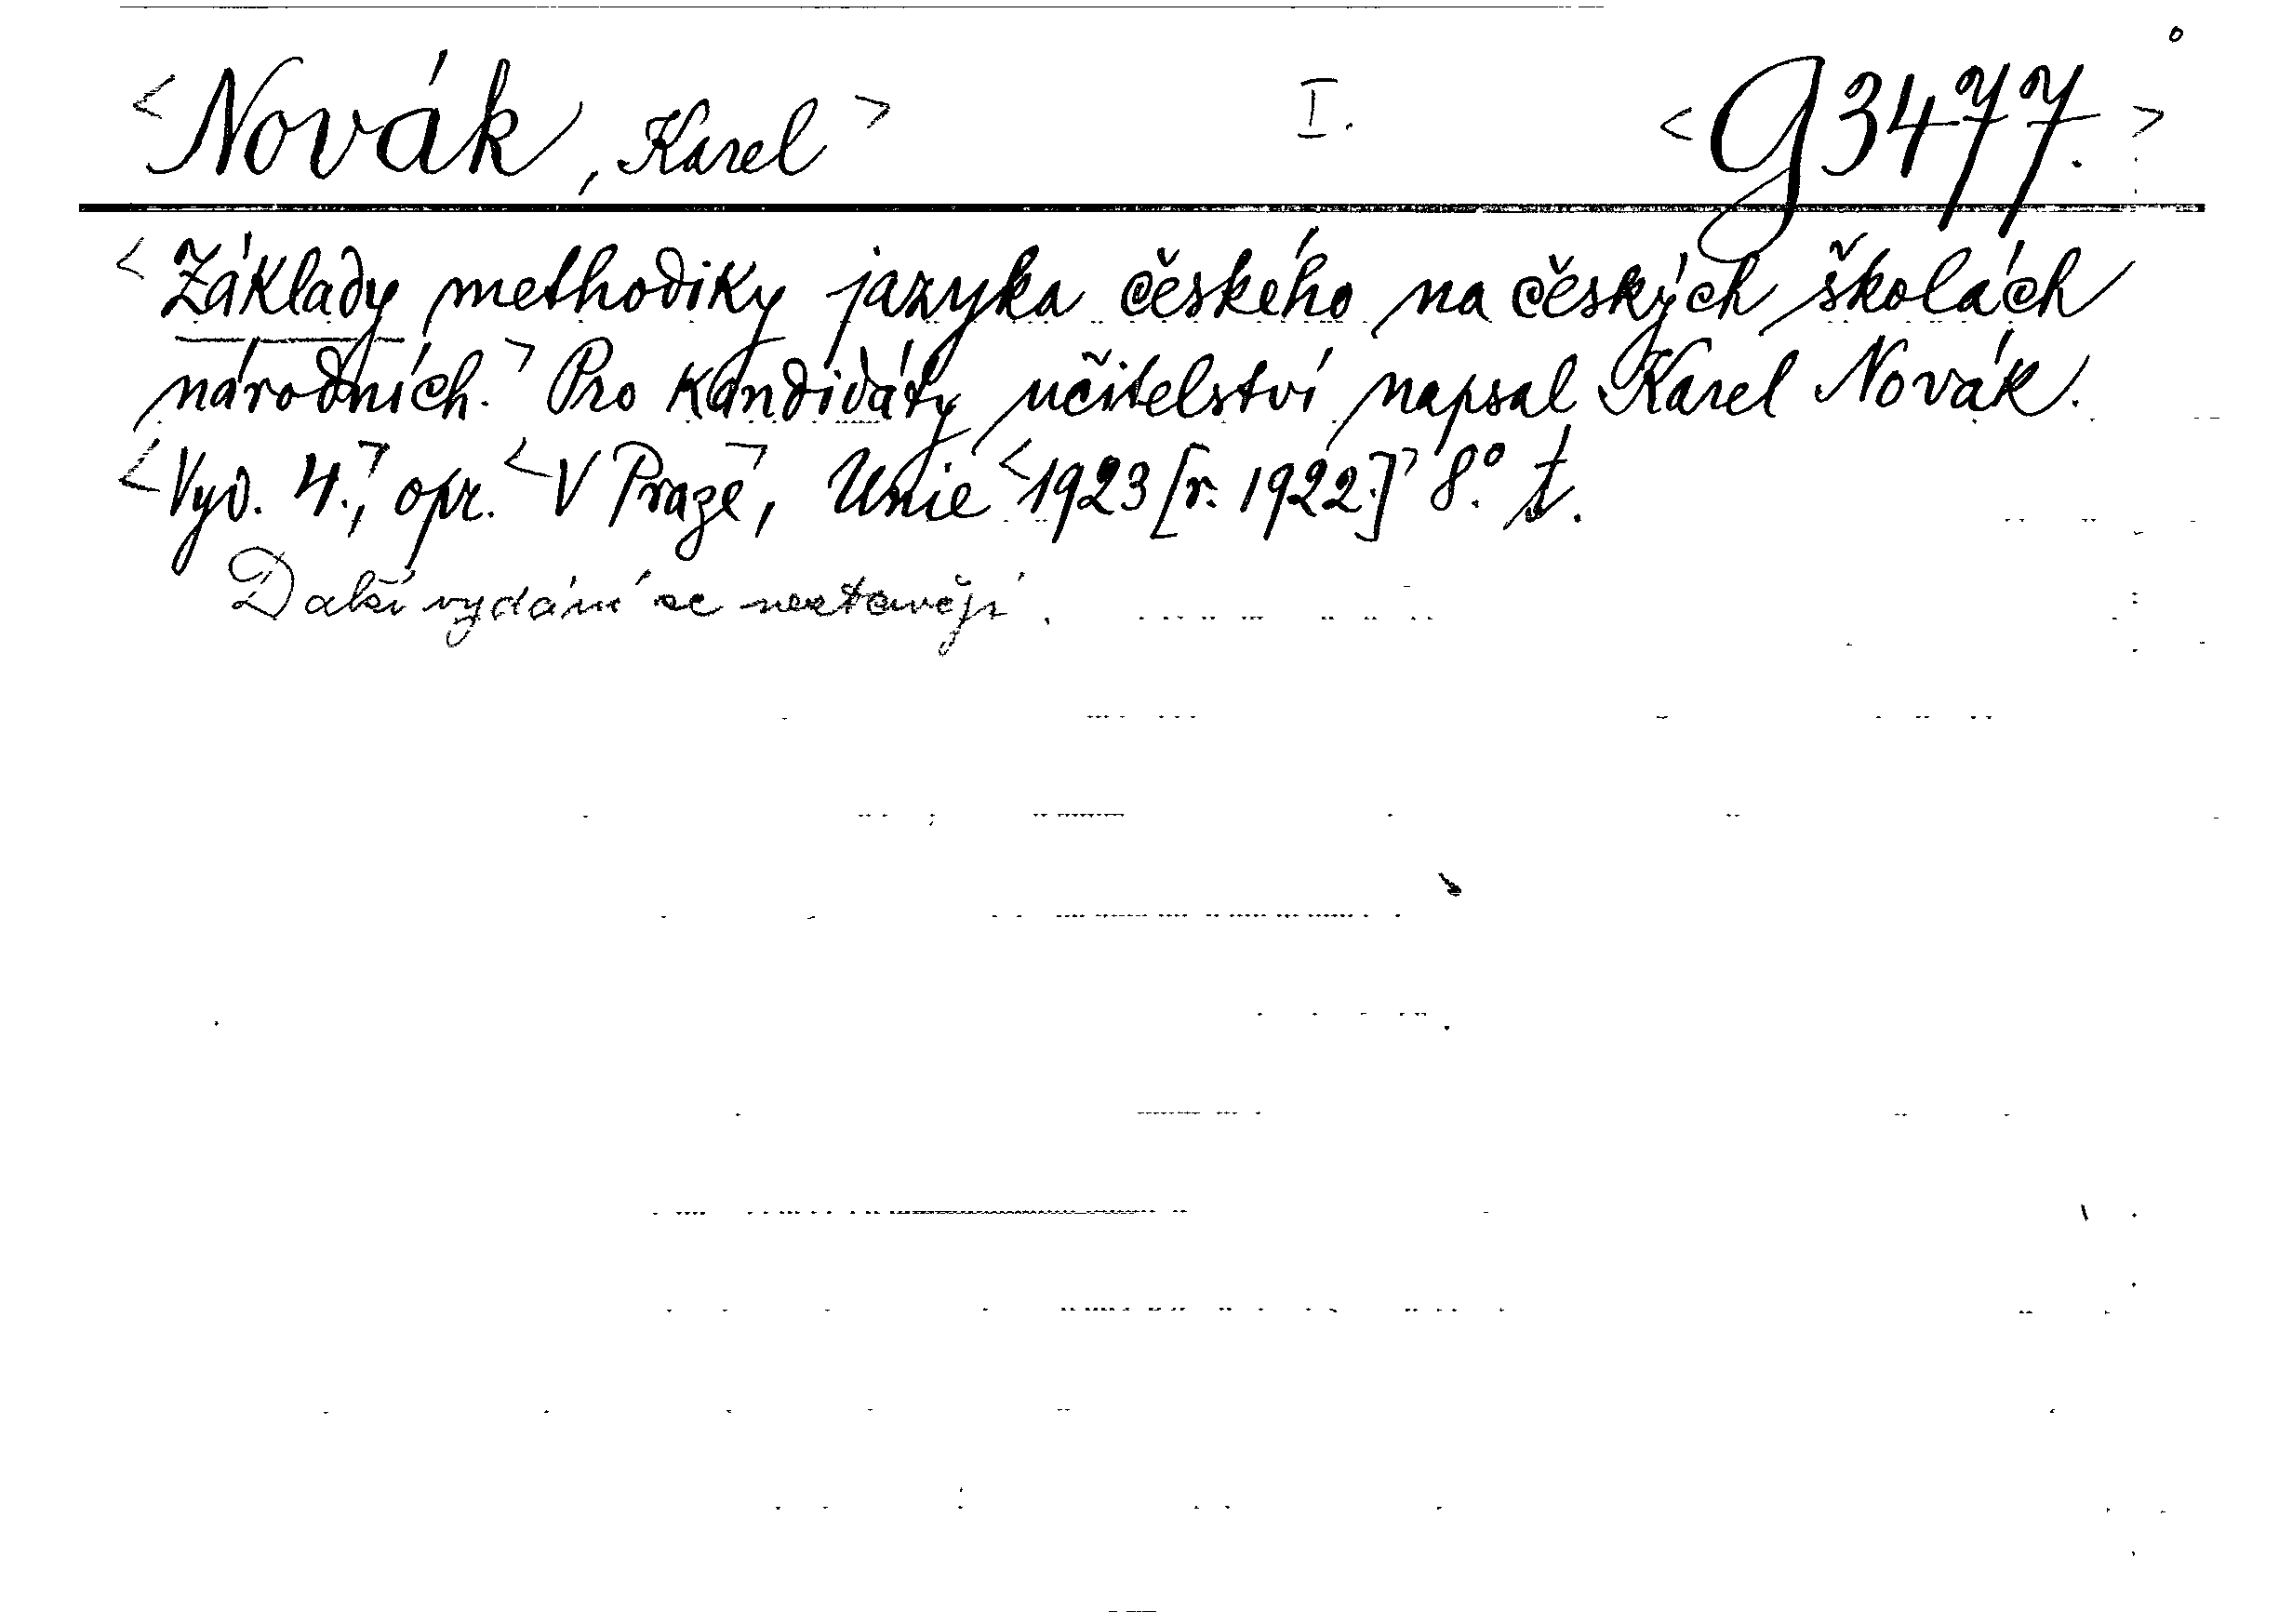 <Novák, Karel> I. <G 3477.>
<Základy methodiky jazyka českého na českých školách
národních.> Pro kandidáty učitelství napsal Karel Novák.
<Vyd. 4.,> opr. <V Praze>, Unie <1923 [r. 1922.]> 8.° t.
Další vydání se nestavějí.